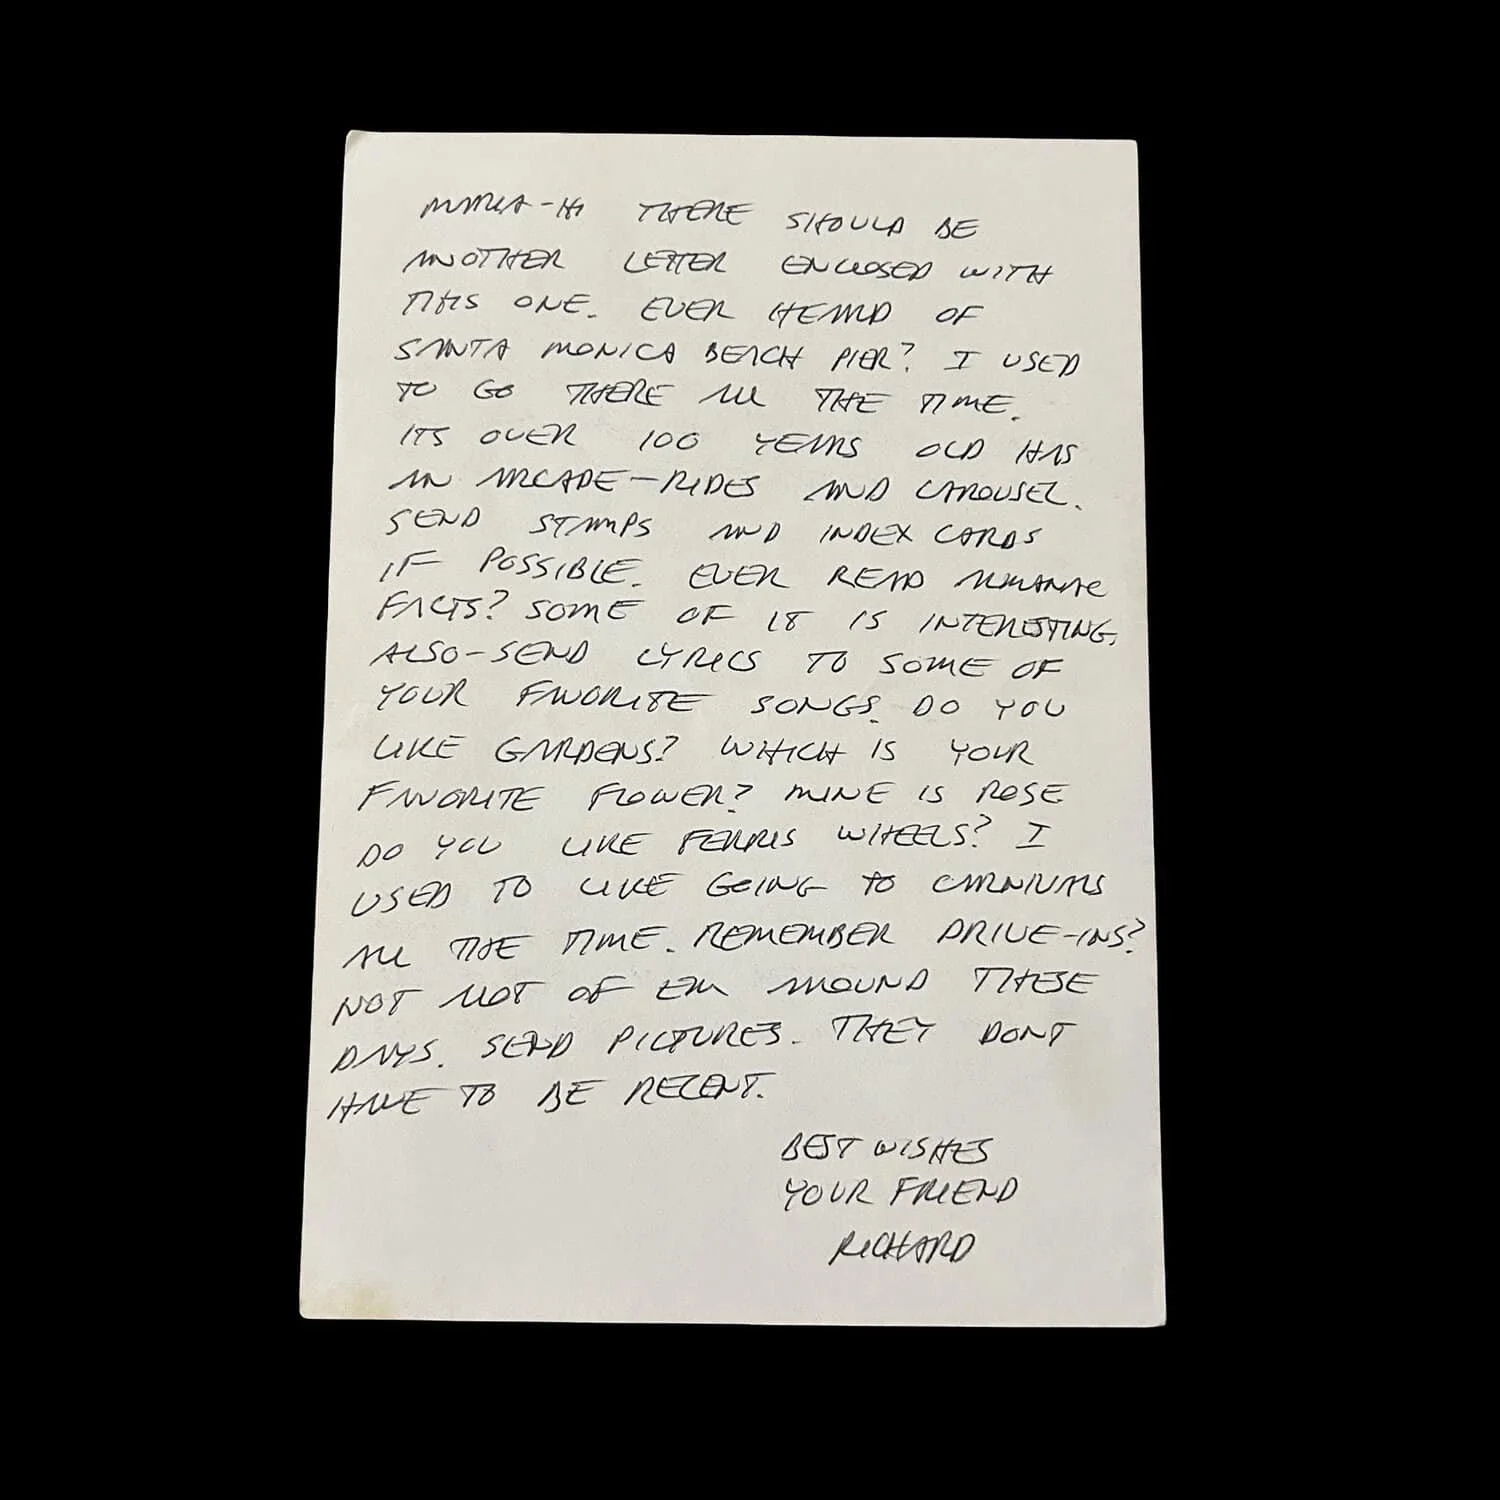 MARIA-HI THERE SHOULD BE
ANOTHER LETTER ENCLOSED WITH
THIS ONE. EVER HEARD OF
SANTA MONICA BEACH PIER? I USED
TO GO THERE ALL THE TIME.
ITS OVER 100 YEARS OLD HAS
AN ARCADE-RIDES AND CAROUSEL.
SEND STAMPS AND INDEX CARDS
IF POSSIBLE. EVER READ ALMANAC
FACTS? SOME OF IT IS INTERESTING.
ALSO-SEND LYRICS TO SOME OF
YOUR FAVORITE SONGS. DO YOU
LIKE GARDENS? WHICH IS YOUR
FAVORITE FLOWER? MINE IS ROSE.
DO YOU LIKE FERRIS WHEELS? I
USED TO LIKE GOING TO CARNIVALS
ALL THE TIME. REMEMBER DRIVE-INS?
NOT ALOT OF EM AROUND THESE
DAYS. SEND PICTURES. THEY DONT
HAVE TO BE RECENT.
BEST WISHES
YOUR FRIEND
RICHARD